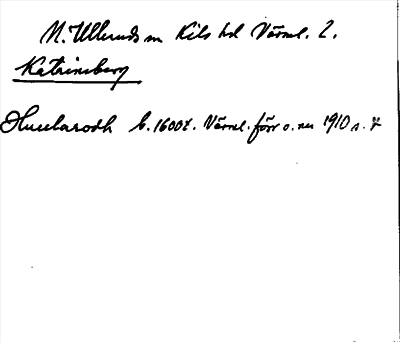 N. Ulleruds sn Kils hd Värml. l.
Katrineberg
Hucklarodh b. 1600t. Värml. förr o. nu 1910 s. 7